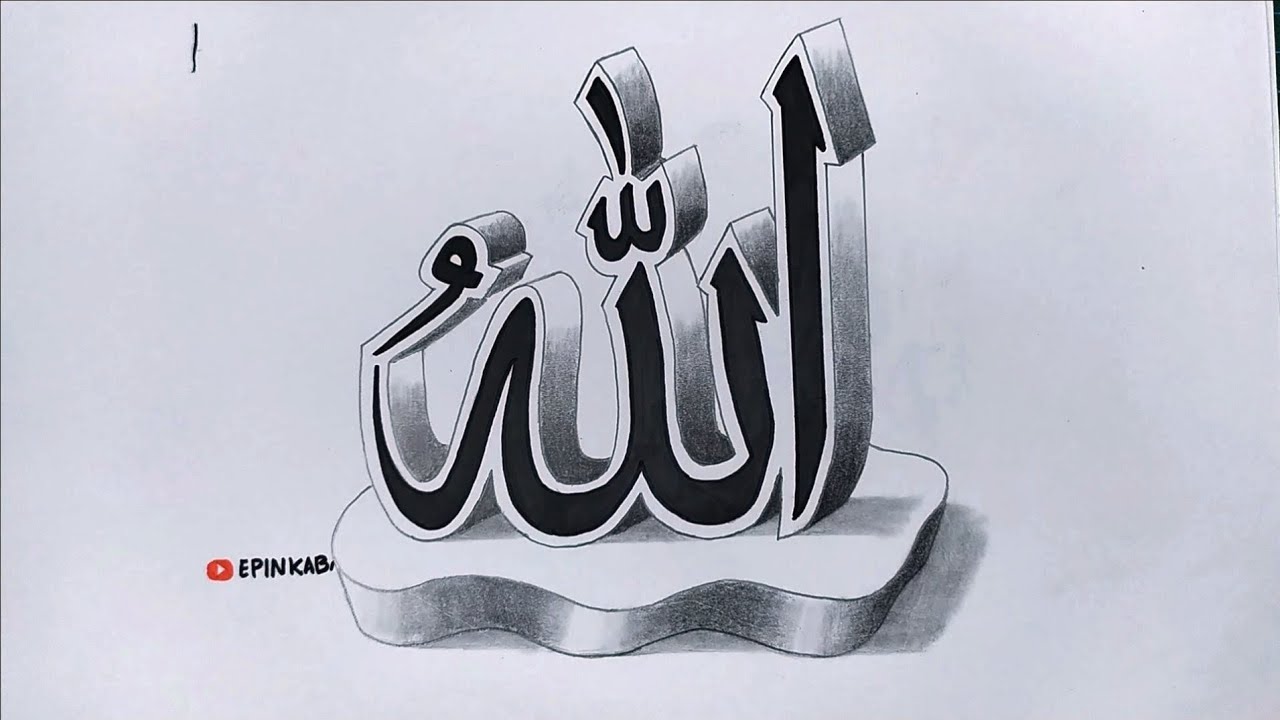 اللّٰهُ
EPINKABA